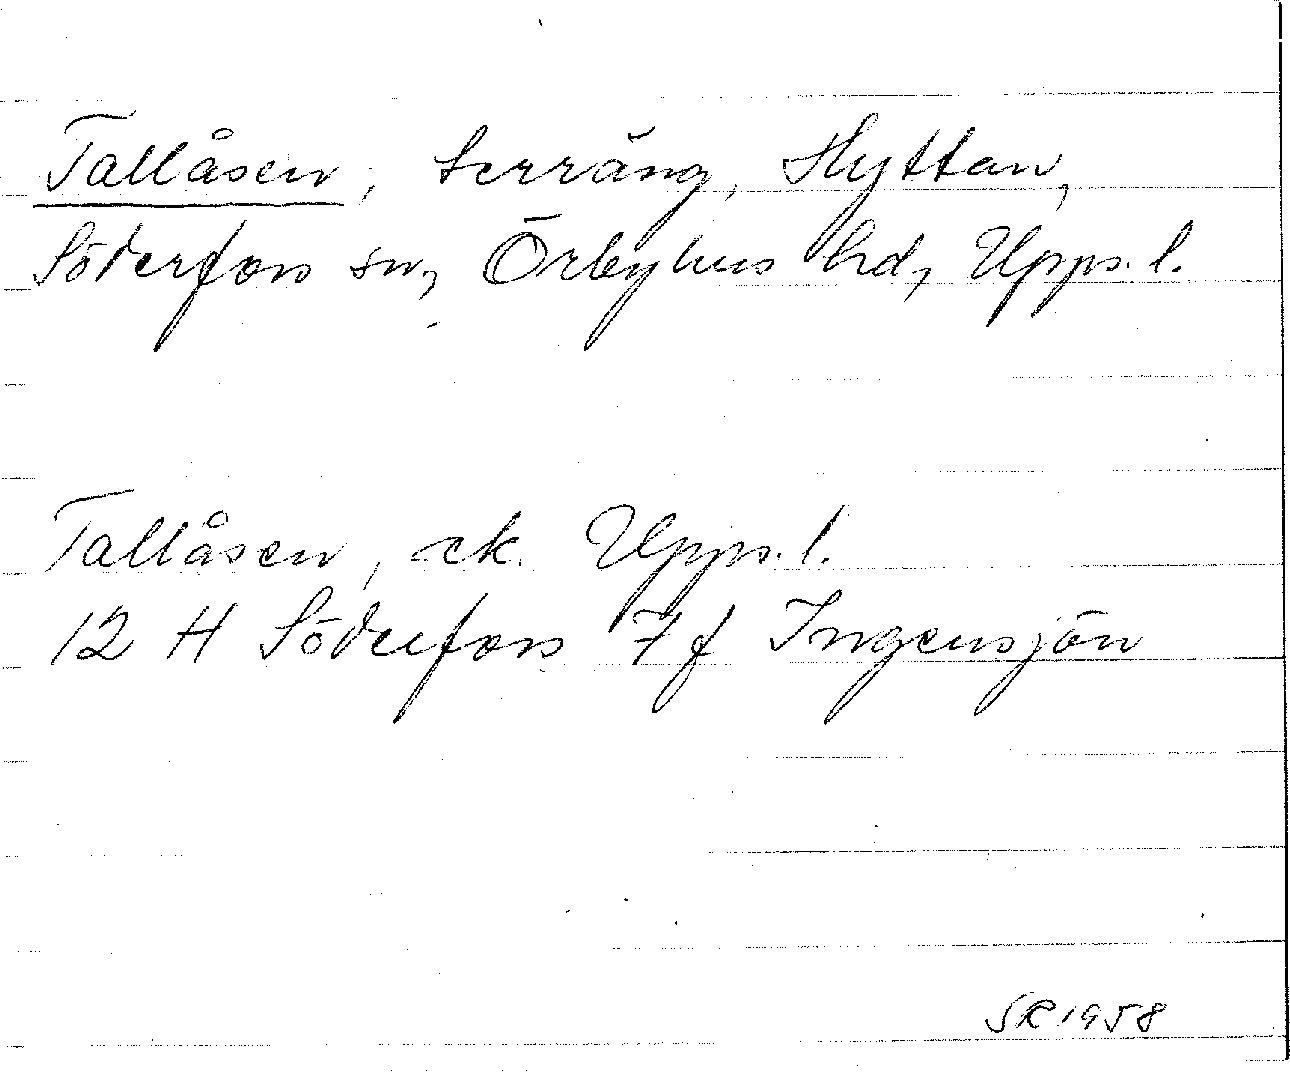 Tallåsen, terräng, Hyttan,
Söderfors sn, Örbyhus hd, Upps. l.
Tallåsen, ek. Upps. l.
12 H Söderfors 7f Ingensjön
SR 1958